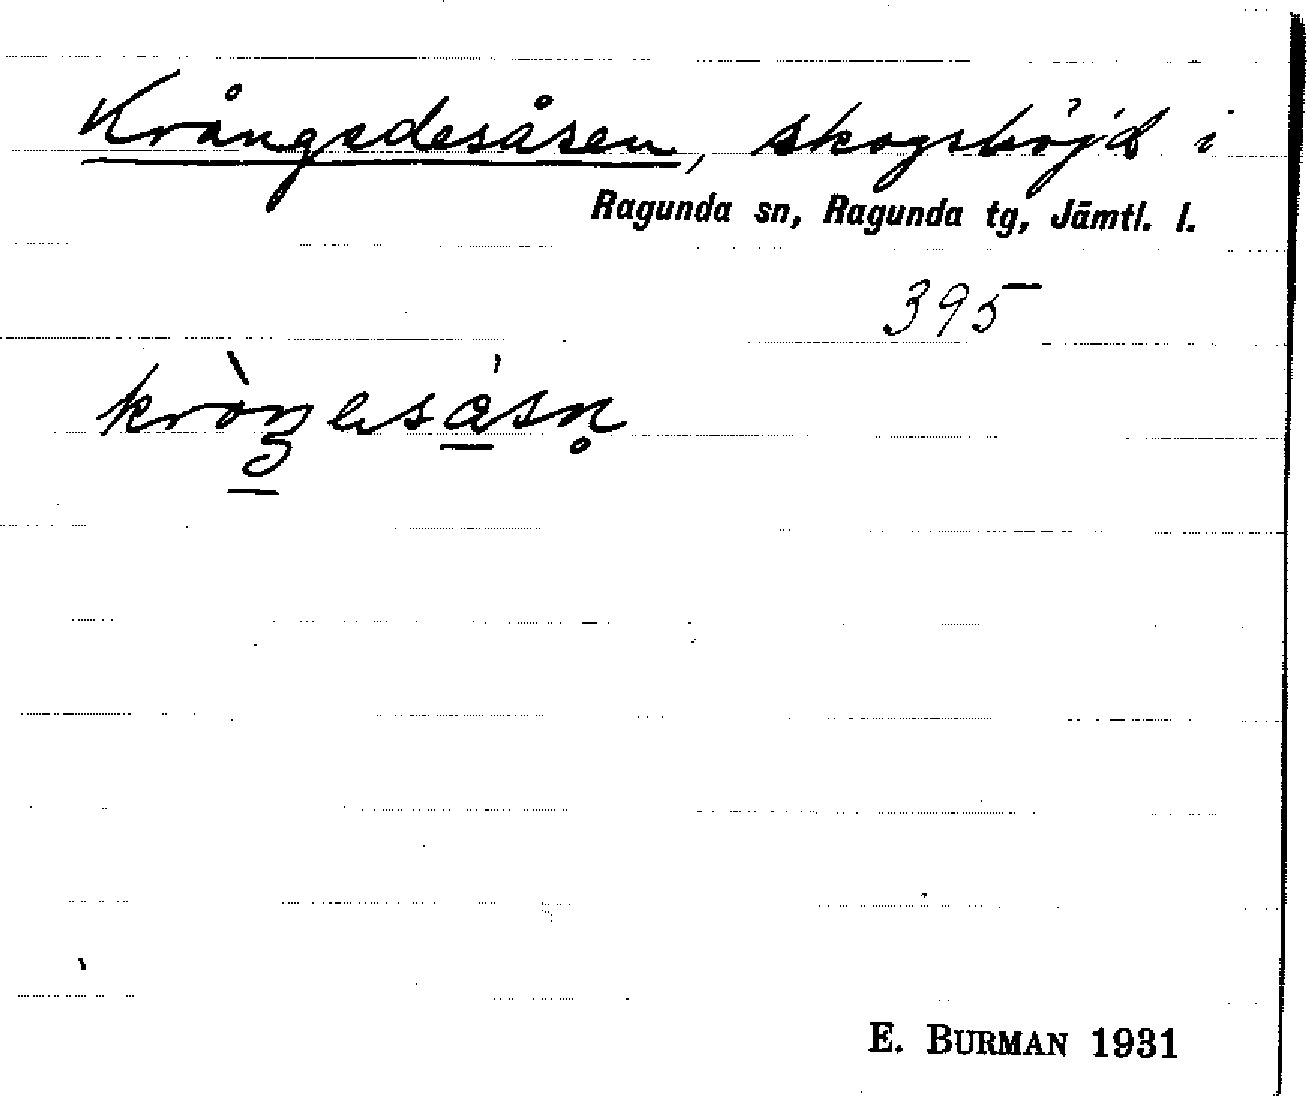 Krångedesåsen, skogshöjd i
Ragunda sn, Ragunda tg, Jämtl. l.
395
E. BURMAN 1931